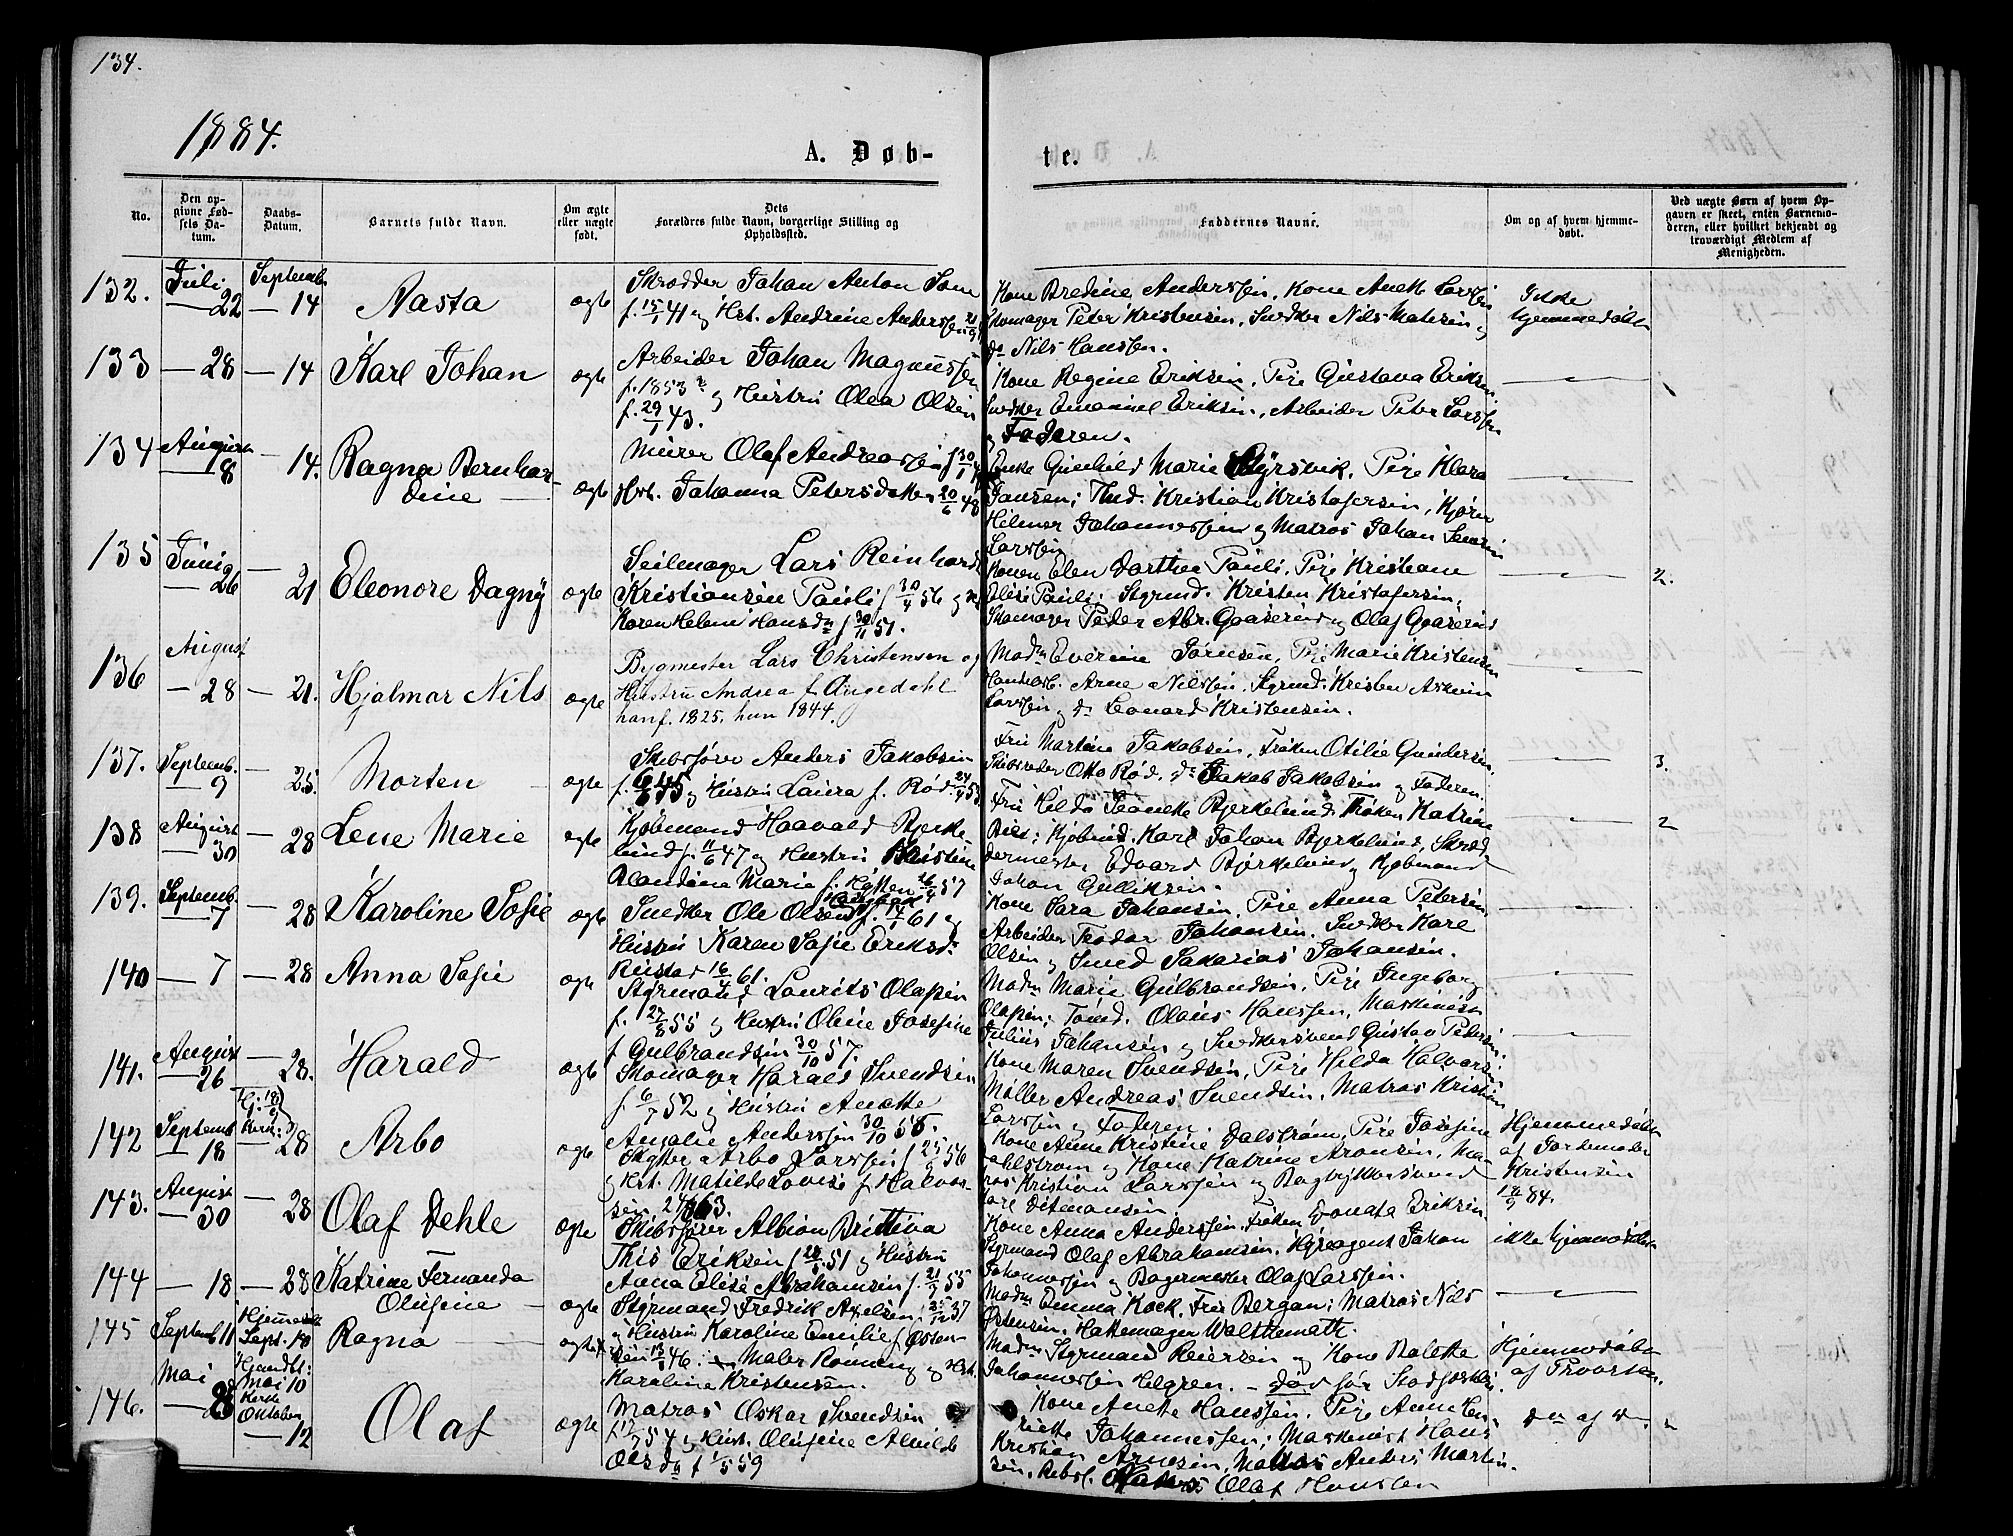 134.
1884.
A. Døb-
te.
No.
Den op-
givne Fød-
sels Da-
tum.
Daabs-
Datum.
Barnets fulde Navn.
Om ægte
eller uægte
født.
Dets
Forældres fulde Navn, borgerlige Stilling og
Opholdssted.
Faddernes Navne.
Om og af hvem hjemme-
døbt.
Ved uægte Børn af hvem Op-
gaven er skeet, enten Barnemo-
deren, eller hvilket bekjendt og
troværdigt Medlem af
Menigheden.
132. Juli 22 Septemb. 14 Aasta ægte
Skrædder Johan Anton
f. 15/1 41 og Hst. Andrine Anderssen
Kone Bredine Anderssen, Kone Anette Larssen
Skomager Peter Kristensen, Snedker Nils Madsen og
do Nils Hanssen.
Ikke
hjemmedøbt
133 — 28 — 14 Karl Johan ægte
Arbeider Johan Magnussen
f. 1853 og Hustru Olea Olsen
f. 29/1 43.
Kone Regine Eriksen, Pige Gustava Eriksen
Snedker Emanuel Eriksen, Arbeider Peter Larssen
og Faderen.
134 August 8 — 14. Ragna Bernhar-
dine — ægte
Murer Olaf Andreassen f 30/1
Hst. Johanna Petersdatter 20/6 48
Enke Gunhild Marie Pige Klara
Jansen; Kristian Kristofersen,
Hilmar Johannessen og Matros Johan
Larssen
135 Juni 26 — 21 Eleonore Dagny ægte
Seilmager Lars Reinhard
Kristiansen Pauli f 30/4 56 og
Karen Helene Hansdr f 30/11 51.
Konen Elen Dorthea Pauli, Pige Kristiane
Elise Pauli, Styrmd. Kristen Kristofersen,
Skomager Peder Abr. Goaserud og Olaf Goaserud
2.
136 August 28 — 21. Hjalmar Nils ægte
Bygmester Lars Christensen og
Hustru Andrea f. Angedahl
han f. 1825, hun 1844.
Madm Everine Jørnsen, Pige Marie Kristensen
Arne Nilssen, Styrmd. Kristen
Larssen og do Leonard Kristensen.
137. Septemb. 9 — 25. Morten — ægte
Skibsfører Anders Jakobsen
f. 45 og Hustru Laura f. Rød 24/4 55
Fru Martine Jakobsen, Frøken Otilie Gundersen,
Skibsreder Otto Rød, do Jakob Jakobsen og Faderen.
3.
138 August 30 — 28 Lene Marie ægte
Kjøbmand Haavald Bjerke-
lund f. 11/6 47 og Hustru
Alandine Marie f. Hytten 26/4 57
Fru Hilda Jeanette Bjerkelund, Frøken Katrine
Kjøbmd. Karl Johan Bjerkelund, Skræd-
dermester Edvard Bjerkelund og Kjøbmand
Johan Gulliksen.
2
139. Septemb. 7 — 28 Karoline Sofie ægte
Snedker Ole Olsen f. 61 og
Hustru Karen Sofie Eriksdr
16/4 61.
Kone Sara Johansen, Pige Anna Petersen,
Arbeider Teodor Johansen, Snedker Karl
Olsen og Smed Sakarias Johansen.
140 — 7 — 28 Anna Sofie ægte
Styrmand Laurits Olafsen
f. 27/8 55 og Hustru Oline Josefine
f Gulbrandsen 30/10 57.
Madm Marie Gulbrandsen, Pige Ingeborg
Olafsen; Tømd. Olaus Hanssen, Maskinist
Julius Johansen og Snedkersvend Gustav Petersen.
141. August 26 — 28. Harald ægte
Skomager Harald Svendsen
f. 6/7 52 og Hustru Anette
Amalie Anderssen 30/10 58.
Kone Maren Svendsen, Pige Hilda Halvorsen
Møller Andreas Svendsen, Matros Kristian
Larssen og Faderen.
142 Septemb. 18 Hj. 18/9 Kirk: 28 Arbo ægte
Arbo Larssen f 25/9 56
og Hst. Matilde Lovise f Halvor-
sen 63.
Kone Anne Kristine Dalstrøm, Pige Josefine
Dahlstrøm og Kone Katrine Aronsen, Ma-
tros Kristian Larssen og Bogtrykkersvend
Karl Ditmansen.
Hjemmedøbt
af Jordemoder
Kristensen
18/9 84.
143. August 30 — 28 Olaf Dehle ægte
Skibsfører Albion Brittina
This Eriksen f 51 og Hustru
Anna Elise Abrahamsen f. 21/9 55
Kone Anna Anderssen, Frøken Donata Eriksen
Styrmand Olaf Abrahamsen, Johan
Johannessen og Bagermester Olaf Larssen.
ikke hjemmedøbt
144 — 18 — 28 Katrine Fernanda
Olufine — ægte
Styrmand Fredrik Axelsen 37
og Hustru Karoline Emilie f. Østen-
sen 46.
Madm Emma Kock, Fru Bergan; Matros Nils
Østensen, Hattemager Walthemath.
145 Septemb 11 Hjemmedøbt
Sept. 18 Ragna — ægte
Maler Rønning og Hst.
Karoline Kristensen.
Madm Styrmand Reiersen og Kone
Johannessen Helgren. — død før Stadfæstelsen
Hjemmedøbt
af Provsten.
146. Mai 8 Hjemdbt:
Mai 10
Kirke
Oktober
— 12 Olaf ægte
Matros Oskar Svendsen
f 17/7 54 og Hust. Olufine Alvilde
Olsdr f 1/5 59
Kone Anette Hanssen, Pige Anne Hen-
riette Johannessen; Maskinist Hans
Kristian Arnesen, Matros Anders Martin-
sen, Olaf Hanssen
do af do